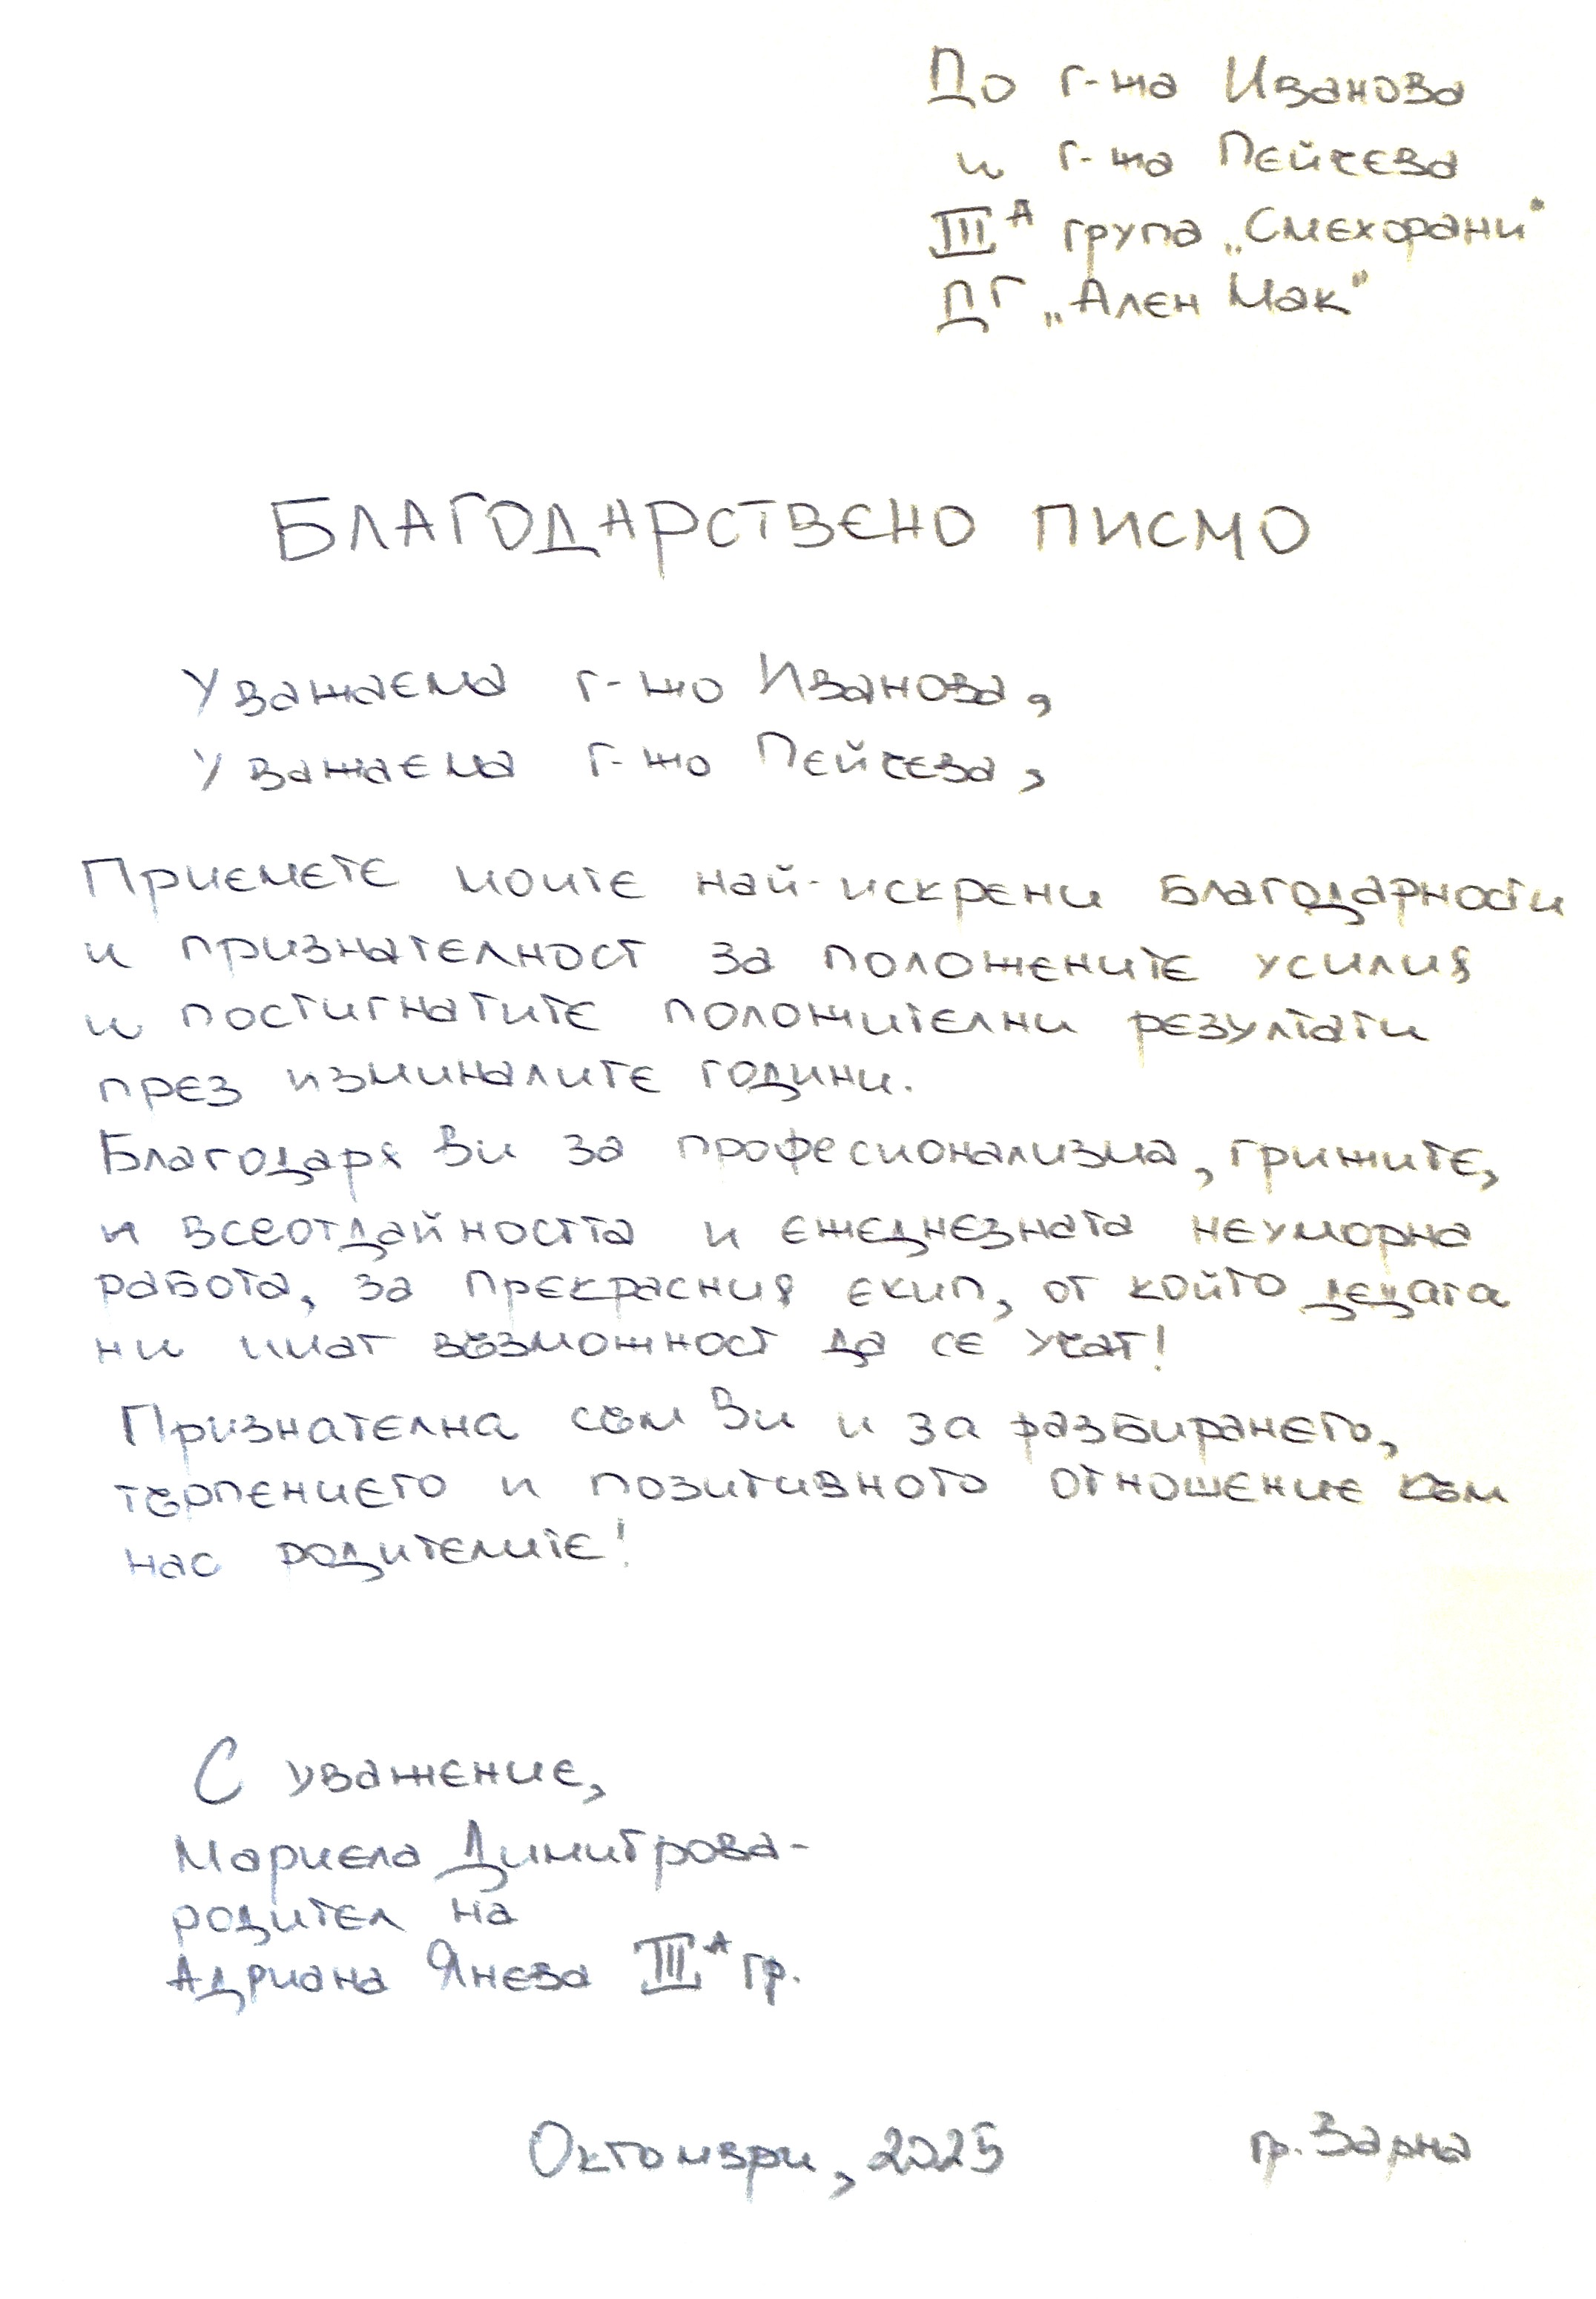 До г-жа Иванова
и г-жа Пейчева
III А група „Смехорани“
ДГ „Ален Мак“
БЛАГОДАРСТВЕНО ПИСМО
Уважаема г-жо Иванова,
Уважаема г-жо Пейчева,
Приемете моите най-искрени благодарности
и признателност за положените усилия
и постигнатите положителни резултати
през изминалите години.
Благодаря Ви за професионализма, грижите,
и всеотдайността и ежеднезната неуморна
работа, за прекрасния екип, от който децата
ни имат възможност да се учат!
Признателна съм Ви и за разбирането,
търпението и позитивното отношение към
нас родителите!
С уважение,
Мариела Димитрова-
родител на
Адриана Янева III А гр.
Октомври, 2025 гр. Варна